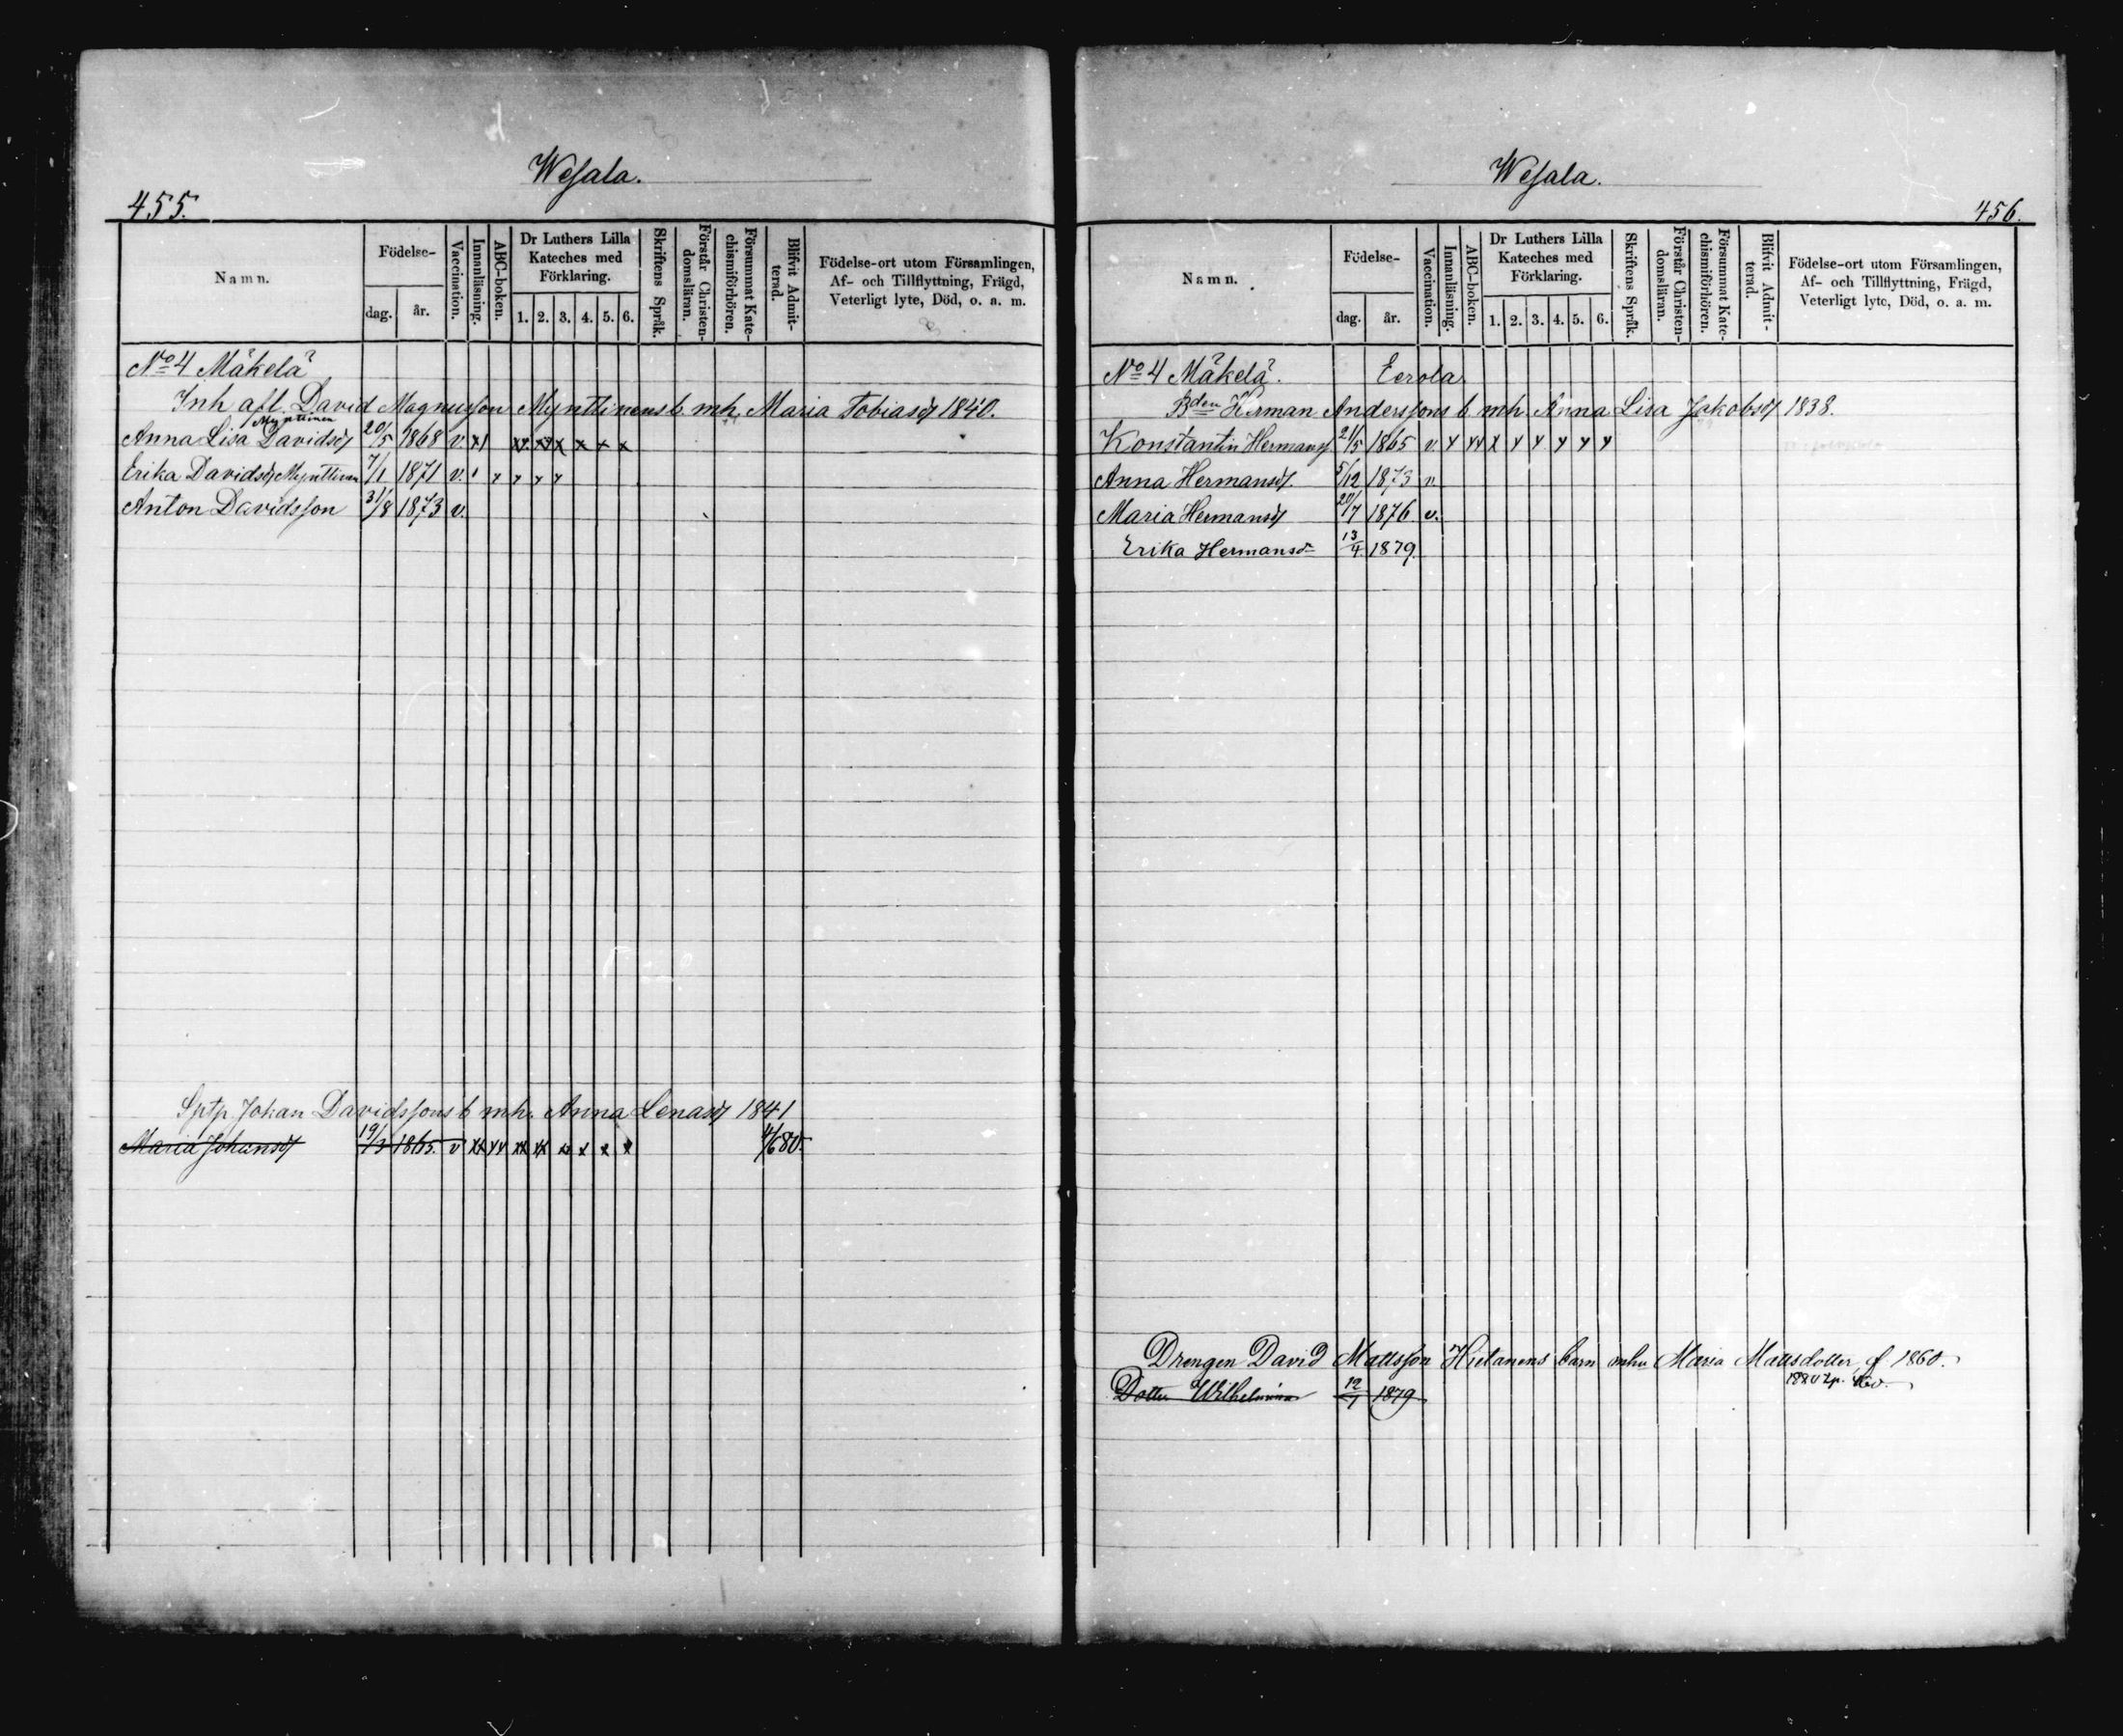 Wesala.
455.
Namn.
Födelse-
dag.
år.
Vaccination.
Innanläsning.
ABC-boken.
Dr Luthers Lilla
Kateches med
Förklaring.
1. 2. 3. 4. 5. 6.
Skriftens Språk.
Förstår Christen-
domsläran.
Försummat Kate-
chismiförhören.
Blifvit Admit-
terad.
Födelse-ort utom Församlingen,
Af- och Tillflyttning, Frägd,
Veterligt lyte, Död, o. a. m.
No 4 Mäkelä
Inh afl. David Magnusson Mynttinens b. mh. Maria Tobiasd 1840.
Mynttinen
Anna Lisa Davidsd 20/5 1868 v. x1 xx xx x x x x
Erika Davidsd Mynttinen 7/1 1871 v. ' y y y y
Anton Davidsson 31/8 1873 v.
Johan Davidssons b mh. Anna Lenasd 1841
Maria Johansd 19/3 1865. v xx yy xx xx xx x x x 4/6 80.
Wesala.
456.
Namn.
Födelse-
dag.
år.
Vaccination.
Innanläsning.
ABC-boken.
Dr Luthers Lilla
Kateches med
Förklaring.
1. 2. 3. 4. 5. 6.
Skriftens Språk.
Förstår Christen-
domsläran.
Försummat Kate-
chismiförhören.
Blifvit Admit-
terad.
Födelse-ort utom Församlingen,
Af- och Tillflyttning, Frägd,
Veterligt lyte, Död, o. a. m.
No 4 Mäkelä. Eerola
Bden Herman Anderssons b mh. Anna Lisa Jakobsd 1838.
Konstantin Hermans 21/5 1865 v. y yy x y y y y y
Anna Hermansd. 5/12 1873 v
Maria Hermansd 20/7 1876 v.
Erika Hermansd 13/4 1879.
Drengen David Mattsson Hietanens barn mhu Maria Mattsdotter f 1860.
Dotter Wilhelmina 12/1 1879